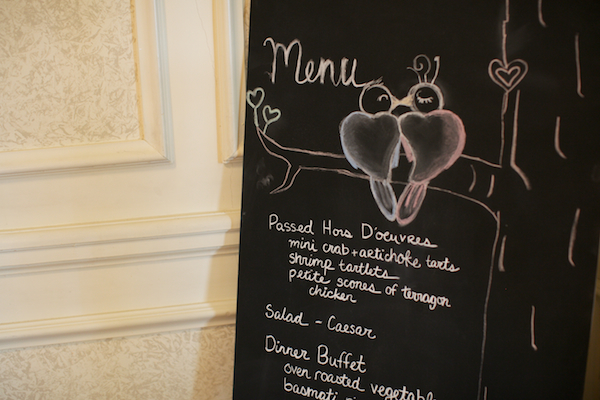 Menu
Passed Hors D'oeuvres
mini crab + artichoke tarts
shrimp tartlets
petite scones of terragon
chicken
Salad - Caesar
Dinner Buffet
oven roasted vegetabl
basmati